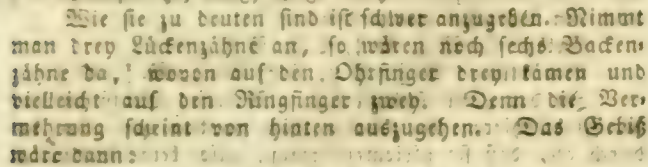 Wie sie zu deuten sind ist schwer anzugeben. Nimmt
man drey Lückenzähne an, so wären noch sechs Backen-
zähne da, wovon auf den Ohrfinger drey kämen und
vielleicht auf den Ringfinger zwey. Denn die Ver-
mehrung scheint von hinten auszugehen. Das Gebiß
wäre dann: